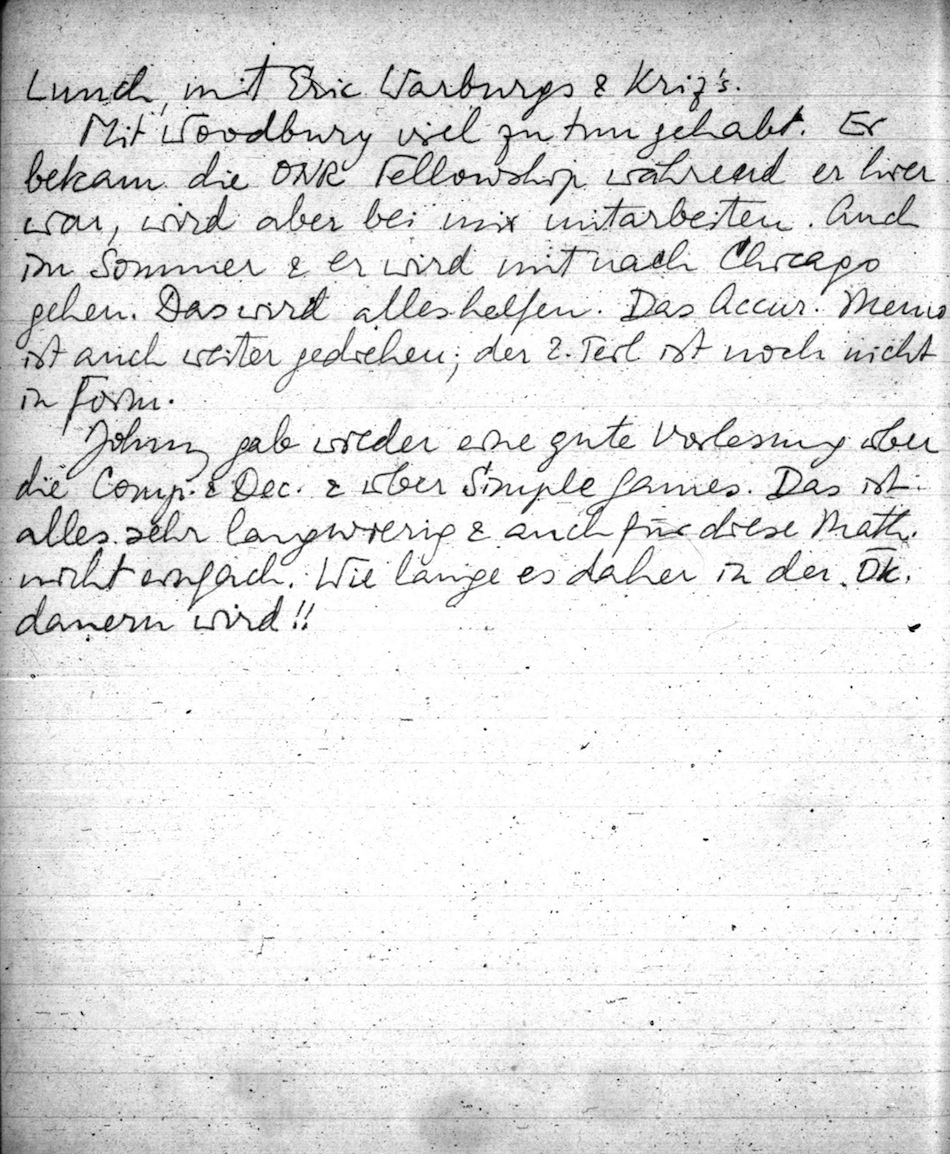 Lunch, mit Eric Warburgs & Kriz's.
Mit Woodbury viel zu tun gehabt. Er
bekam die ONR Fellowship während er hier
war, wird aber bei mir mitarbeiten. Auch
im Sommer & er wird mit nach Chicago
gehen. Das wird alles helfen. Das Accur. Memo
ist auch weiter gediehen; der 2. Teil ist noch nicht
in Form.
Johnny gab wieder eine gute Vorlesung über
die Comp. & Dec. & über Simple Games. Das ist
alles sehr langwierig & auch für diese Math.
nicht einfach. Wie lange es daher in der Ök.
dauern wird!!